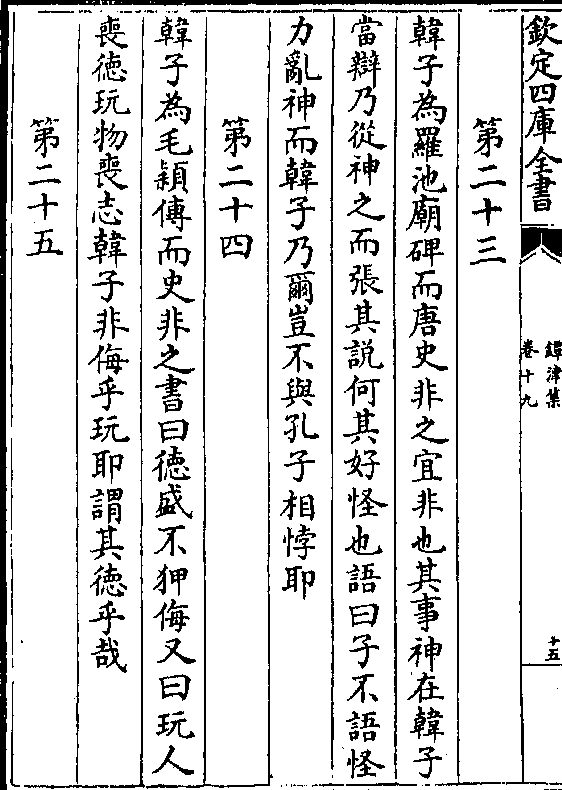 欽定四庫全書
鐔津集
卷十九
十五
第二十三
韓子為羅池廟碑而唐史非之宜非也其事神在韓子
當辯乃從神之而張其說何其好怪也語曰子不語怪
力亂神而韓子乃爾豈不與孔子相悖耶
第二十四
韓子為毛穎傳而史非之書曰德盛不狎侮又曰玩人
喪德玩物喪志韓子非侮乎玩耶謂其德乎哉
第二十五